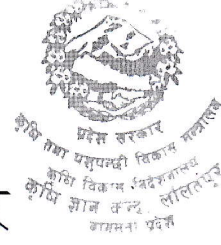 प्रदेश सरकार
कृषि तथा पशुपन्छी विकास मन्त्रालय
कृषि विकास निर्देशनालय
कृषि ज्ञान केन्द्र ललितपुर
बागमती प्रदेश